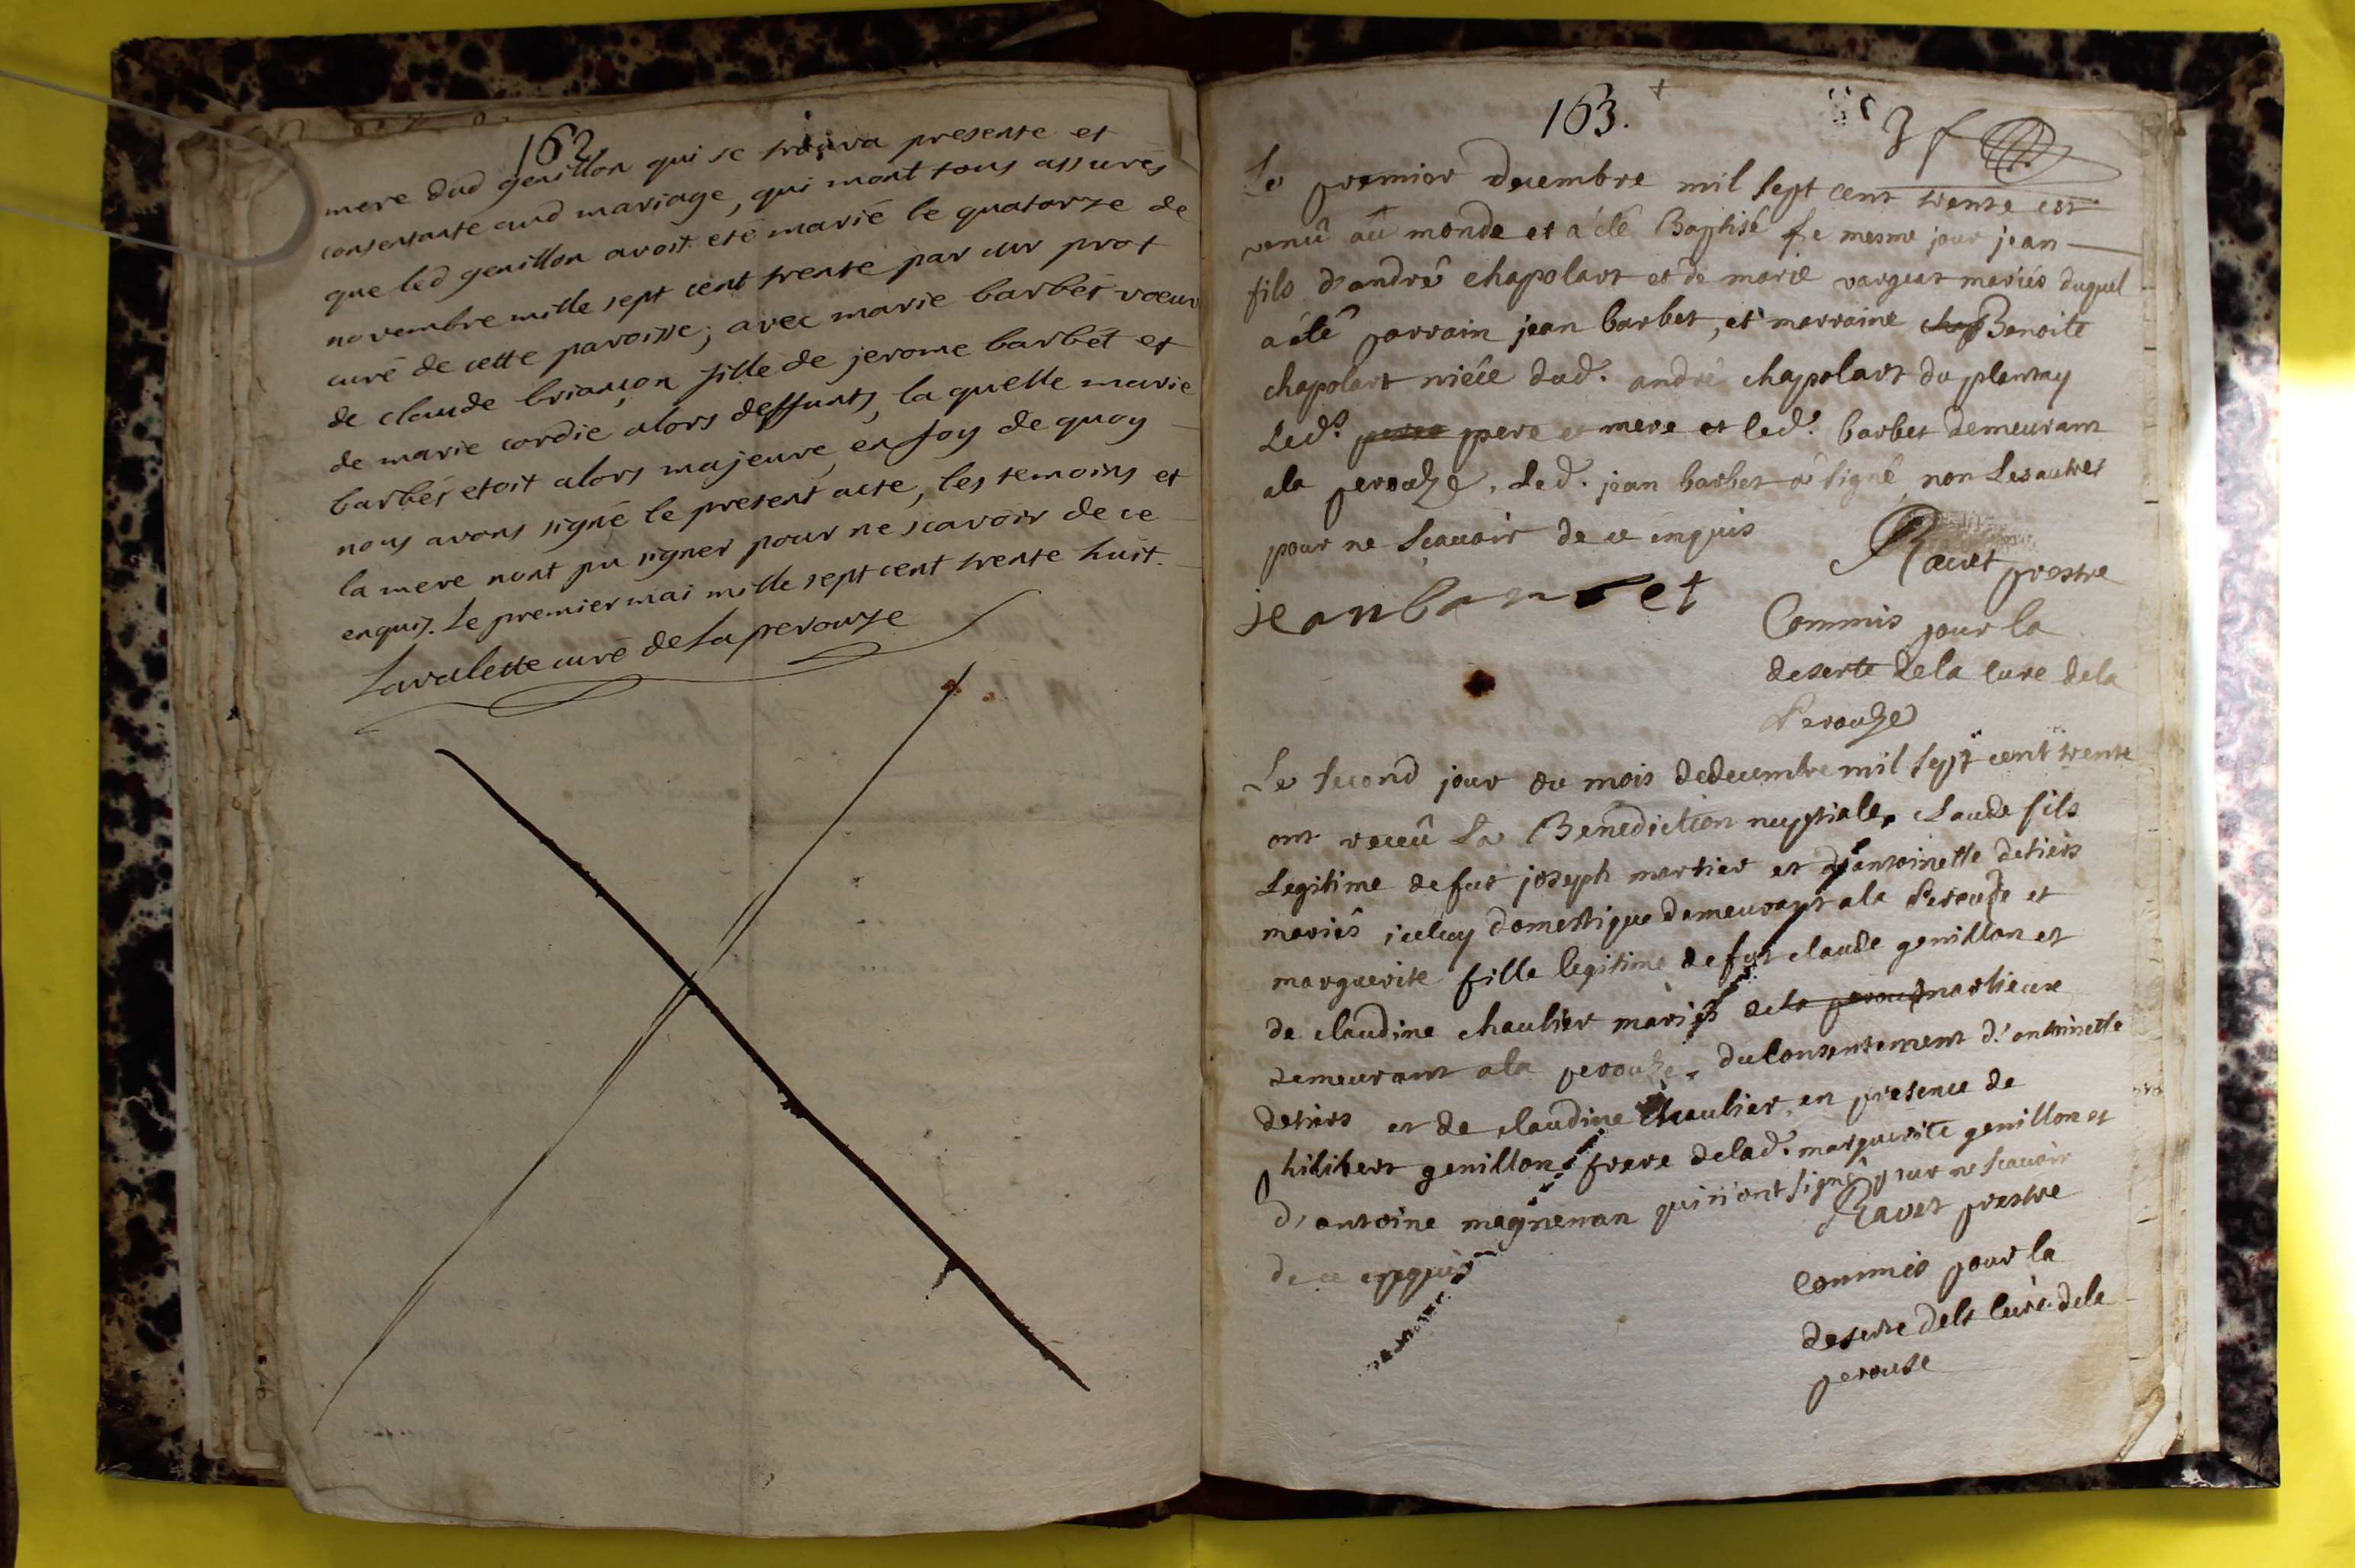 162
mere dud genillon qui se trouva presente et
consentante aud mariage, qui mont tous assurés
que led genillon avoit eté marié le quatorze de
novembre mille sept cent trente par mr prot
curé de cette paroisse, avec marie barbét voeuv
de claude briançon fille de jerome barbét et
de marie cordié alors deffunts, la quelle marie
barbét etoit alors majeure, en foy de quoy
nous avons signé le present acte, les temoins et
la mere nont pu signer pour ne scavoir de ce
enquis. Le premier mai mille sept cent trente huit.
Lavalette curé de La perouze
163.
3 f
Le premier decembre mil sept cent trente est
venû aû monde et a eté Baptisé le mesme jour jean
fils d'andrê chapolart et de marie vargeat mariés duquel
a étê parrain jean barbet, et marraine Benoite
chapolart niéce dud. andrê chapolart du plantay
Led. pere et mere et led. barbet demeurant
ala perouze, Led. jean barbet a signé non Les autres
pour ne Scauoir de ce enquis
Ravet prestre
jean barbet
Commis pour la
deserte dela cure dela
Perouze
Le second jour du mois dedecembre mil sept cent trente
ont receû La Benediction nuptiale, Claude fils
Legitime defut joseph mortier et d'antoinette detiers
mariés iceluy domestique demeurant ala Perouze et
marguerite fille legitime defut claude genillon et
de claudine chaulier mariés dela
demeurant ala perouze, du Consentement d'antoinette
detiers et de claudine chaulier en presence de
philibert genillon frere delad. marguerite genillon et
d'antoine magnenan qui n'ont signé pour ne scauoir
de ce enquis
Ravet prestre
Commis pour la
deserte dela Cure dela
perouse